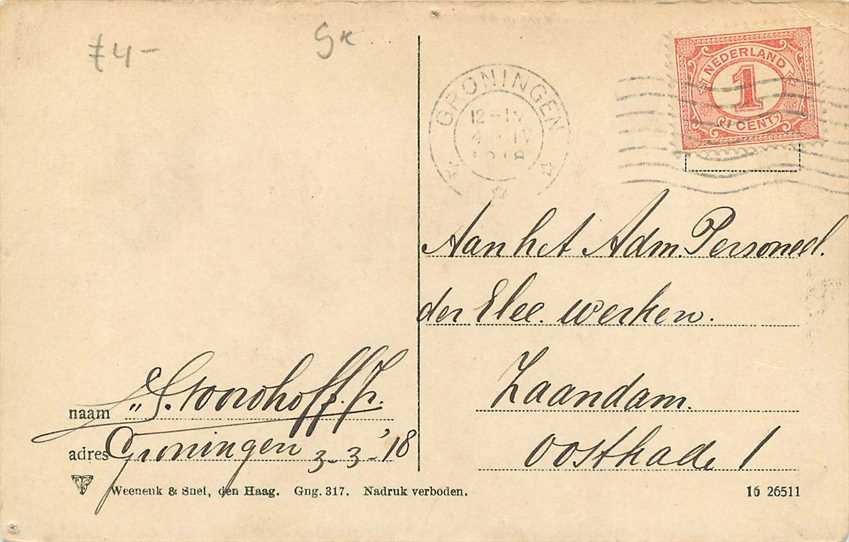 £4-
Sk
NEDERLAND
1
CENT
GRONINGEN
12-1V
4 1V
1918
Aan het Adm. Personeel.
der Elec. werken.
Zaandam.
Oostkade 1
naam „S. Noordhoff. Jr.
adres Groningen 3-3-'18
Weenenk & Snel, den Haag. Gng. 317. Nadruk verboden.
16 26511